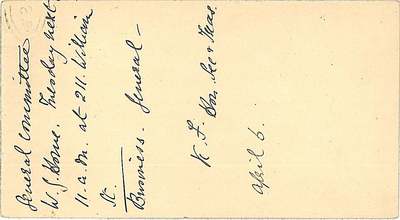 General Committee
W. S. Home. Tuesday next
11. a.m. at 211. William
St.
Business. General —
K. F. Hon. Sec & Treas.
April 6.